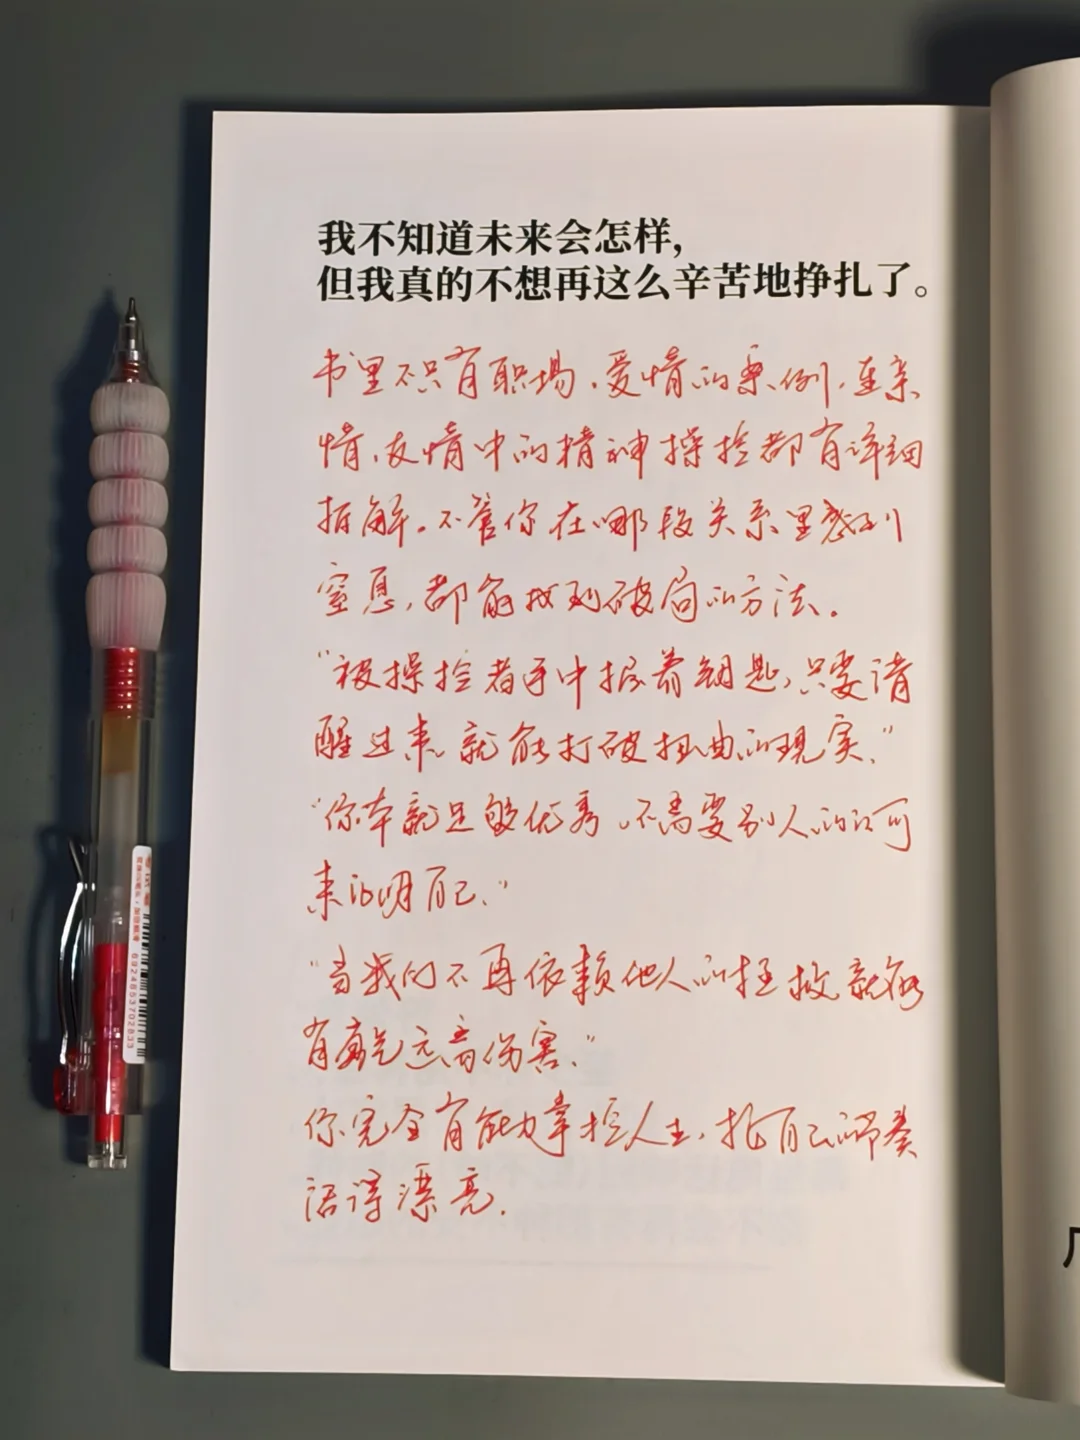 我不知道未来会怎样，
但我真的不想再这么辛苦地挣扎了。
书里不只有职场、爱情的案例，连亲
情、友情中的精神操控都有详细
拆解。不管你在哪段关系里感到
窒息，都能找到破局的方法。
“被操控者手中握着钥匙，只要清
醒过来，就能打破扭曲的现实。”
“你本就足够优秀，不需要别人的认可
来证明自己。”
“当我们不再依赖他人的拯救，就能
有底气远离伤害。”
你完全有能力掌控人生，按自己的节奏
活得漂亮。
6924853702833